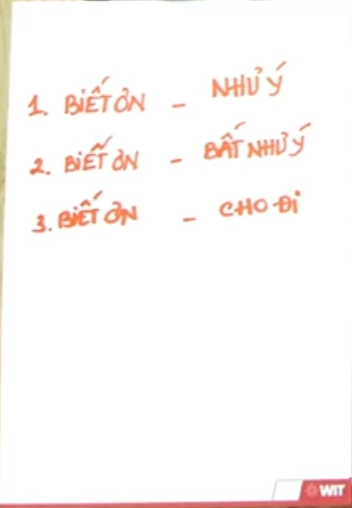 1. BIẾT ƠN - NHƯ Ý
2. BIẾT ƠN - BẤT NHƯ Ý
3. BIẾT ƠN - CHO ĐI
WIT